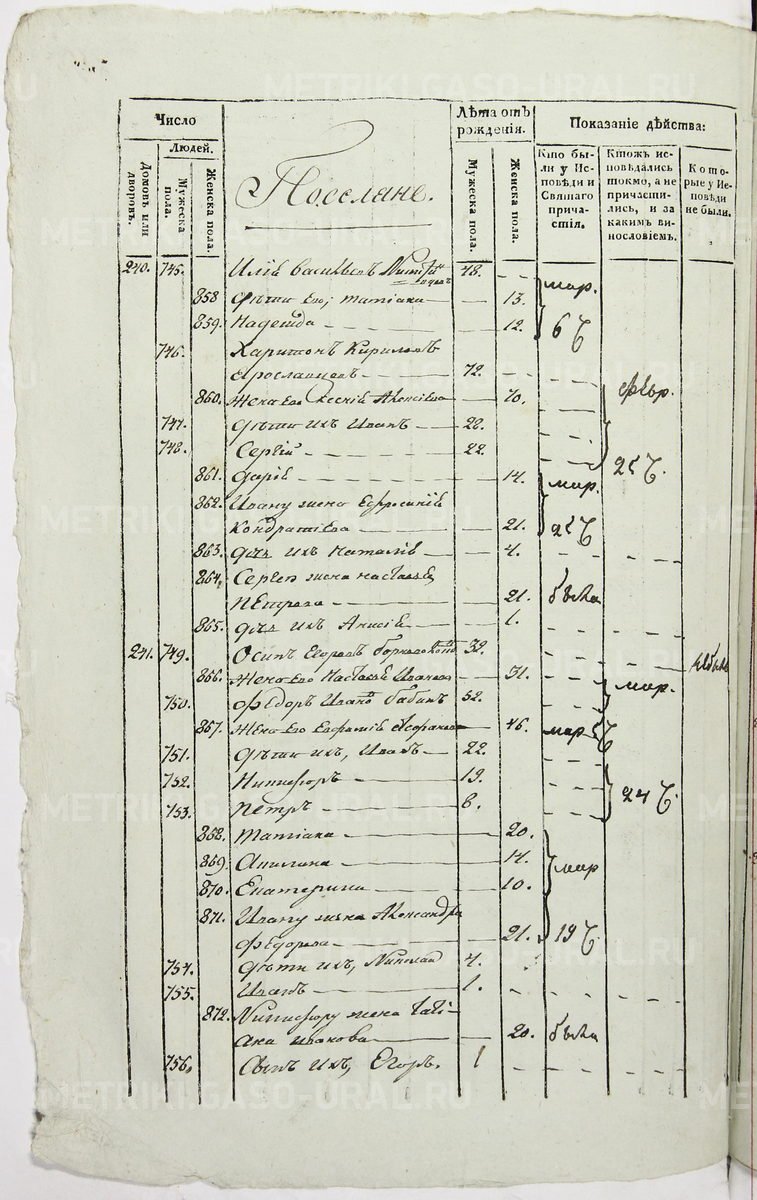 METRIKI.GASO-URAL.RU
Число
Лѣта отъ рожденія.
Показаніе дѣйства:
Людей.
Домовъ или дворовъ.
Мужеска пола.
Женска пола.
Поселяне.
Мужеска пола.
Женска пола.
Кто были у Исповѣди и Святаго причастія.
Ктожъ исповѣдались токмо, а не причастились, и за какимъ винословіемъ.
Которые у Исповѣди не были.
240. 745. Илія Васильевъ 48.
858 Дѣти Его, Татіана 13. мар.
859. Надежда 12. 6 Ч
746. Харитонъ Кириловъ
Ярославцовъ 72.
860. Жена Его Ксенія Алексіева 70. февр.
747. Дѣти ихъ Иванъ 22.
748. Сергій 22. 25 Ч.
861. Дарія 14. мар.
862. Ивану жена Ефросинія
Кондратіева 21. 25 Ч
863. дщь ихъ Наталія 4.
864. Сергею жена Настасья
Петрова 21. была
865. дщь ихъ Анисія 1.
241. 749. Осипъ Егоровъ 32.
866. Жена Его Настасья Иванова 31. мар.
750. Федоръ Ивановъ Бабинъ 52.
867. Жена Его Евфимія 46. мар
751. Дѣти ихъ, Иванъ 22.
752. Никифоръ 19. 24 Ч.
753. Петръ 8.
868. Татіана 20.
869. Акилина 14. мар
870. Екатерина 10.
871. Ивану жена Александра
Федорова 21. 19 Ч
754. Дѣти ихъ, Николай 4.
755. Иванъ 1.
872. Никифору жена Тати-
ана Иванова 20. была
756. Сынъ ихъ, Егоръ. 1